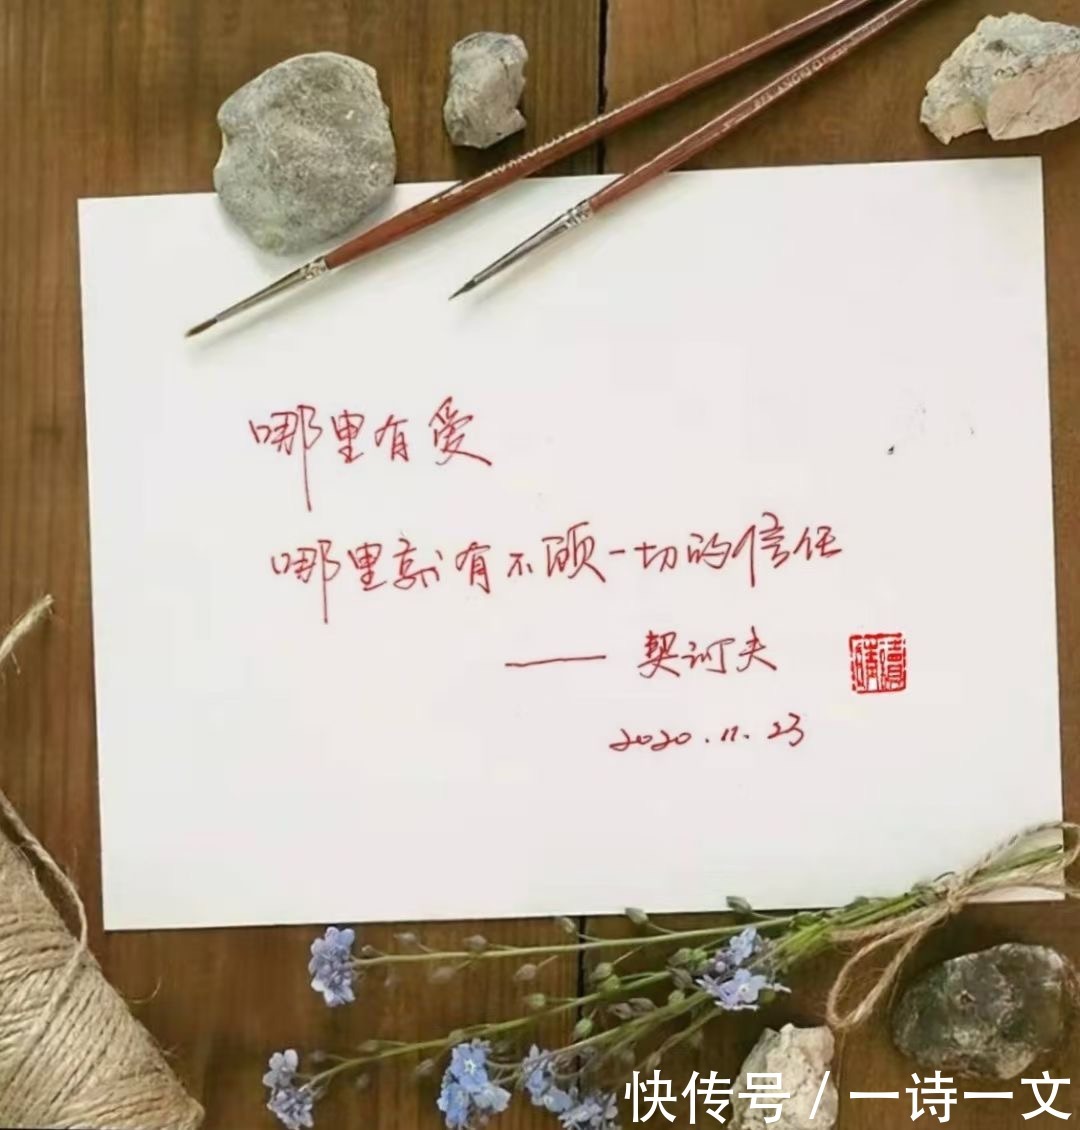 哪里有爱
哪里就有不顾一切的信任
——契诃夫
2020.11.23
快传号/一诗一文